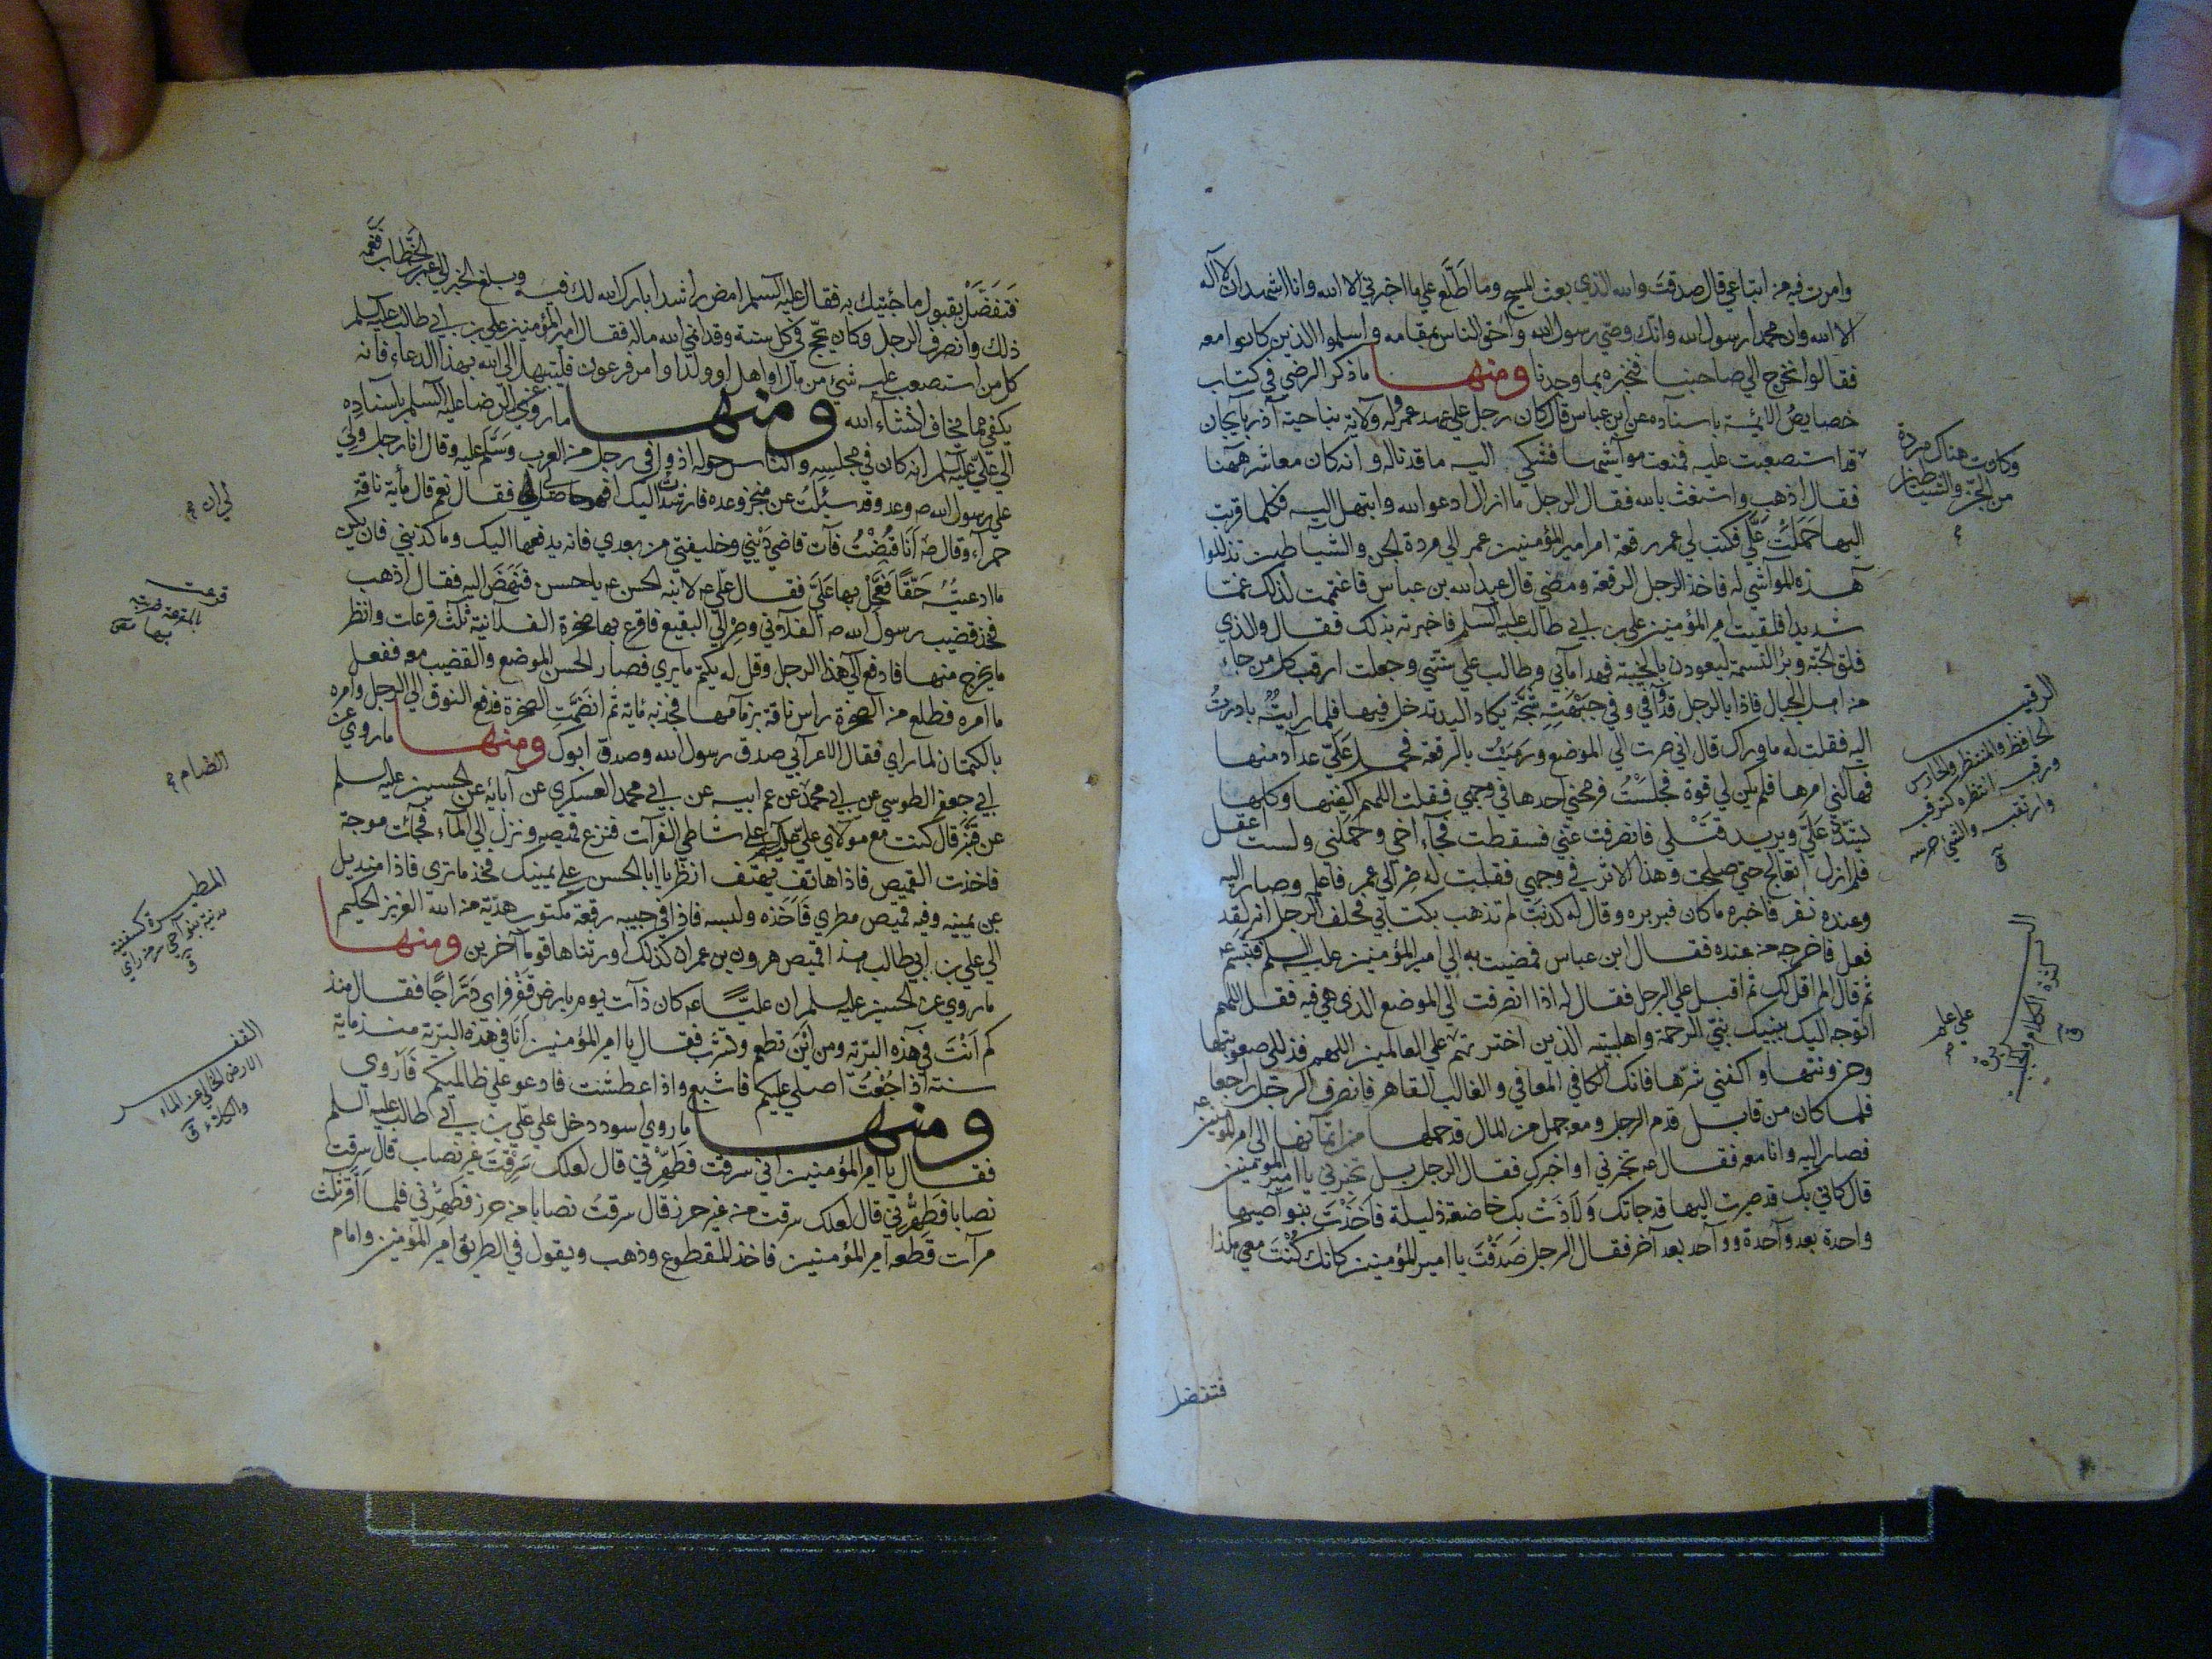 وامرت فيه من اتباعي قال صدقت والله الذي بعث المسيح وما اطلع علي ما اخبرتني الا الله وانا اشهد ان لا اله
الا الله وان محمدا رسول الله وانك وصي رسول الله واحق الناس بمقامه واسلموا الذين كانوا معه
فقالوا نخرج الي صاحبنا فنخبره بما وجدنا ومنها ما ذكر الرضي في كتاب
خصايص الائمية باسناده عن ابن عباس قال كان رجل علي عهد عمر وله ولاية بناحية آذربايجان
قد استصعبت عليه فمنعت مواشيها فشكي اليه ما قد ناله وانه كان معاشر ههنا
فقال اذهب واستغث بالله فقال الرجل ما ازال ادعو الله وابتهل اليه فكلما قربت
اليها حملت علي فكتب لي عمر رقعة امر امير المؤمنين عمر الي مردة الجن والشياطين تذللوا
هذه المواشي له فاخذ الرجل الرقعة ومضي قال عبد الله بن عباس فاغتممت لذلك غما
شديدا فلقيت امير المؤمنين علي بن ابي طالب عليه السلم فاخبرته بذلك فقال والذي
فلق الحبة وبرأ النسمة ليعودن بالخيبة فهدا ما بي وطالت علي سنتي وجعلت ارقب كل من جاء
من اهل الجبال فاذا بالرجل قد وافي وفي جبهته شجة يكاد اليد تدخل فيها فلما رايته بادرت
اليه فقلت له ما وراك قال اني صرت الي الموضع ورميت بالرقعة فحمل علي عداد منها
فهالني امرها فلم يكن لي قوة فجلست فرمحني احدها في وجهي فقلت اللهم اكفنيها وكلها
يشد علي ويريد قتلي فانصرفت عني فسقطت فجاء اخي وحملني ولست اعقل
فلم ازل اتعالج حتي صلحت وهذا الاثر في وجهي فقلت له صر الي عمر فاعلمه وصار اليه
وعنده نفر فاخبره ما كان فزبره وقال له كذبت لم تذهب بكتابي فحلف الرجل انه لقد
فعل فاخرجه من عنده فقال ابن عباس فمضيت به الي امير المؤمنين عليه السلم فتبسم عه
ثم قال الم اقل لك ثم اقبل علي الرجل فقال له اذا انصرفت الي الموضع الذي هي فيه فقل اللهم
اتوجه اليك بنبيك نبي الرحمة واهلبيته الذين اخترتهم علي العالمين اللهم فذلل لي صعوبتها
وحزونتها واكفني شرها فانك الكافي المعافي والغالب القاهر فانصرف الرجل راجعا
فلما كان من قابل قدم الرجل ومعه جمل من المال قد حملها من اثمانها الي امير المؤمنين عه
فصار اليه وانا معه فقال عه تخبرني او اخبرك فقال الرجل بل تخبرني يا امير المؤمنين
قال كاني بك قد صرت اليها قد جاتك ولاذت بك خاضعة ذليلة فاخذت بنواصيها
واحدة بعد واحدة وواحد بعد آخر فقال الرجل صدقت يا امير المؤمنين كانك كنت معي هكذا
فتفضل
وكانت هناك مردة
من الجن والشياطين
الرقيب
الحافظ والمنتظر والحارس
ورقبه انتظره كترقبه
وارتقبه والشيء حرسه
ق
فتفضل بقبول ما جئتك به فقال عليه السلم امض راشدا بارك الله لك فيه وبلغ الخبر الي عمر بن الخطاب فغمه
ذلك وانصرف الرجل وكان يحج في كل سنة وقد انمي الله ماله فقال امير المؤمنين علي بن ابي طالب عليه السلم
كل من استصعب عليه شيئ من مال او اهل او ولد او امر فرعون فليبتهل الي الله بهذا الدعاء فانه
يكفي مما يخاف انشاء الله ومنها ما روي عن الرضا عليه السلم باسناده
الي علي عليه السلم انه كان في مجلسه والناس حوله اذ وافي رجل من العرب وسلم عليه وقال انا رجل ولي
علي رسول الله صه وعد وقد سئلت عن منجز وعده فارشدت اليك افهو حاصل لي فقال نعم قال ماية ناقة
حمراء وقال صه انا قبضت فات قاضي ديني وخليفتي من بعدي فانه يدفعها اليك وما كذبني فان يكن
ما ادعيته حقا فعجل بها علي فقال علي عه لابنه الحسن عه يا حسن فنهض اليه فقال اذهب
فخذ قضيب رسول الله صه الفلاني وصر الي البقيع فاقرع بها صخرة الفلانية ثلث قرعات وانظر
ما يخرج منها فادفع الي هذا الرجل وقل له يكتم ما يري فصار الحسن الموضع والقضيب معه ففعل
ما امره فطلع من الصخرة راس ناقة بزمامها فجذبه ماية ثم انضمت الصخرة فدفع النوق الي الرجل وامره
بالكتمان لما راي فقال الاعرابي صدق رسول الله وصدق ابوك ومنها ما روي عن
ابي جعفر الطوسي عن ابي محمد عن عم ابيه عن ابي محمد العسكري عن آبائه عن الحسين عليه السلم
عن قنبر قال كنت مع مولاي علي عليه السلم علي شاطي الفرات فنزع قميصه ونزل الي الماء فجائت موجة
فاخذت القميص فاذا هاتف يهتف انظر يا ابا الحسن علي يمينك فخذ ما تري فاذا منديل
عن يمينه وفيه قميص مطري فاخذه ولبسه فاذا في جيبه رقعة مكتوب هدية من الله العزيز الحكيم
الي علي بن ابي طالب هذا قميص هرون بن عمران كذلك اورثناها قوما آخرين ومنها
ما روي عن الحسين عليه السلم ان عليا عه كان ذات يوم بارض قفر فراي دراجا فقال منذ
كم انت في هذه البرية ومن اين تطعم وتشرب فقال يا امير المؤمنين انا في هذه البرية منذ ماية
سنة اذا جعت اصلي عليكم فاشبع واذا عطشت فادعو علي ظالميكم فاروي
ومنها ما روي اسود دخل علي علي بن ابي طالب عليه السلم
فقال يا امير المؤمنين اني سرقت فطهرني قال لعلك سرقت غير نصاب قال سرقت
نصابا فطهرني قال لعلك سرقت من غير حرز قال سرقت نصابا من حرز فطهرني فلما اقر ثلث
مرات قطعه امير المؤمنين فاخذ المقطوع وذهب ويقول في الطريق امير المؤمنين وامام
قرعت
بالمقرعة ضربته
بها
القفر
الارض الخالي عن الماء
والكلاء ق